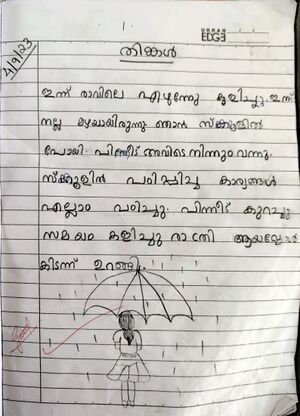 1
URBAN
EDGE
4/9/23
തിങ്കൾ
ഇന്ന് രാവിലെ എഴുന്നേറ്റു കുളിച്ചു. ഇന്ന്
നല്ല മഴയായിരുന്നു ഞാൻ സ്ക്കൂളിൽ
പോയി. പിന്നീട് അവിടെ നിന്നും വന്നു.
സ്ക്കൂളിൽ പഠിപ്പിച്ച കാര്യങ്ങൾ
എല്ലാം പഠിച്ചു. പിന്നീട് കുറച്ചു
സമയം കളിച്ചു രാത്രി ആയപ്പോൾ
കിടന്ന് ഉറങ്ങി.
Good